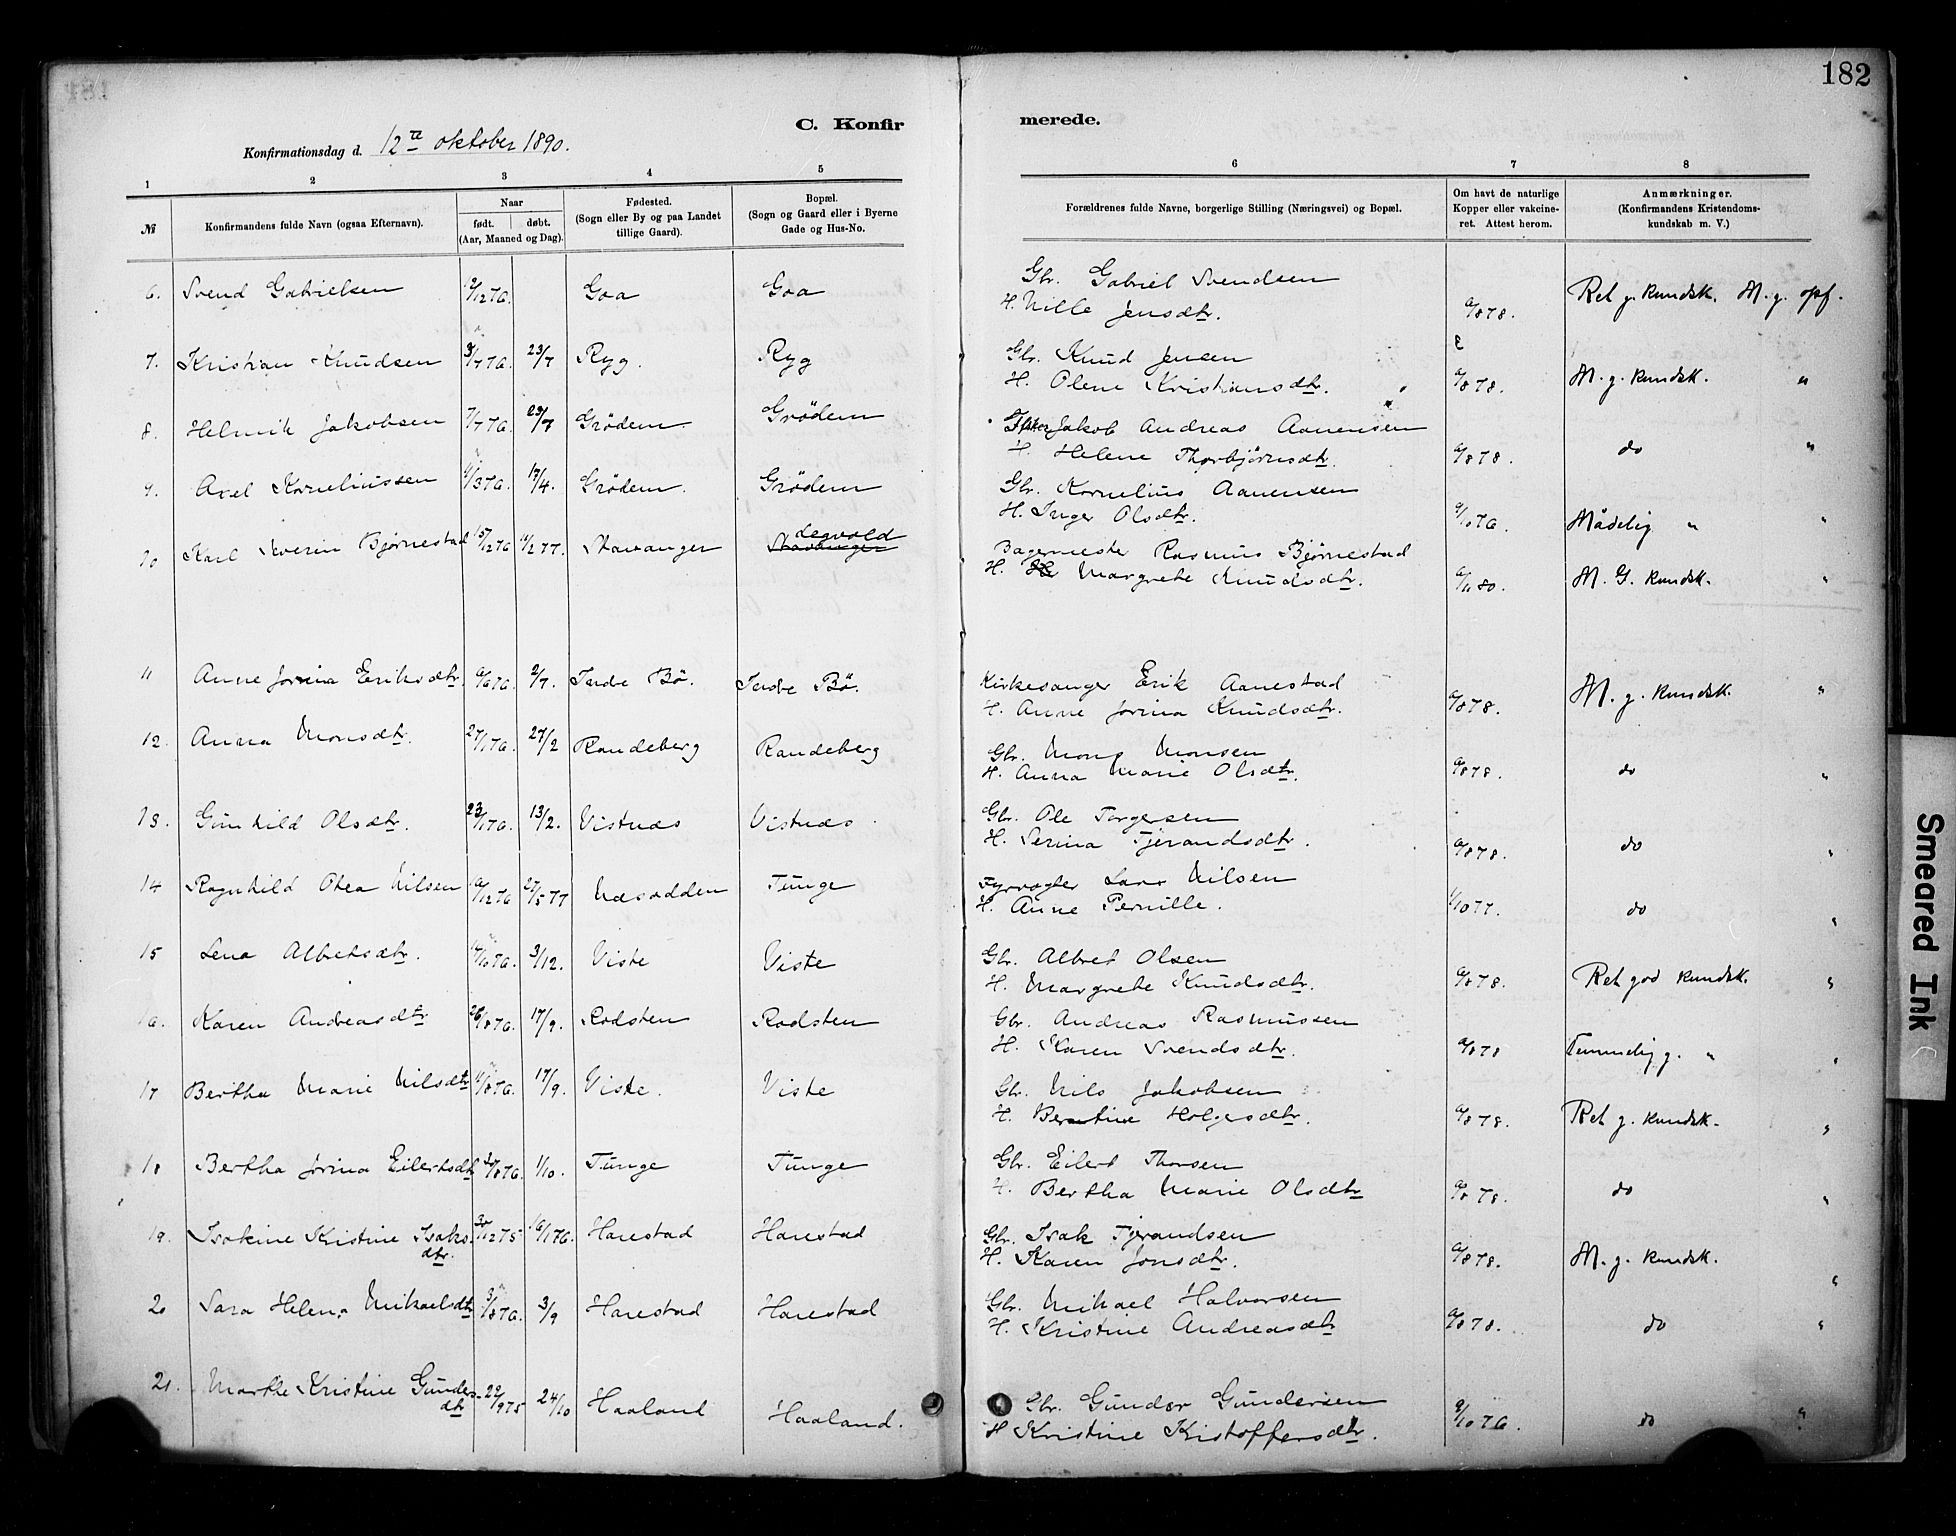 182
C. Konfirmerede.
Konfirmationsdag d. 12te oktober 1890.
1 2 3 4 5 6 7 8
№ Konfirmandens fulde Navn (ogsaa Efternavn). Naar født. døbt. (Aar, Maaned og Dag). Fødested. (Sogn eller By og paa Landet tillige Gaard). Bopæl. (Sogn og Gaard eller i Byerne Gade og Hus-No. Forældrenes fulde Navne, borgerlige Stilling (Næringsvei) og Bopæl. Om havt de naturlige Kopper eller vakcineret. Attest herom. Anmærkninger. (Konfirmandens Kristendomskundskab m. V.)
6. Svend Gabrielsen Goa Goa Gbr. Gabriel Svendsen Ret g. kundsk. M. g. opf.
H. Nille Jensdtr.
7. Kristian Knudsen 23/7 Ryg. Ryg Gbr. Knud Jensen
H. Olene Kristiansdtr. M. g. kundsk. "
8. Helmik Jakobsen 7/7 76. 23/7 Grödem Grödem Jakob Andreas Aanensen
H. Helene Thorbjörnsdtr. do "
9. Axel Korneliussen 17/4. Grödem. Grödem Gbr. Kornelius Aanensen
H. Inger Olsdtr. Mådelig " "
10 Karl Severin Bjørnestad 15/12 76 Stavanger Stavanger degvold Bagermester Rasmus Bjørnestad
H. Margrete Knudsdtr. M. G. kundsk. "
11 Anne Jorina Eriksdtr. 2/7. Indre Bø. Indre Bø. Kirkesanger Erik Aanestad
H. Anne Jorina Knudsdtr. M. g. kundsk. "
12. Anna Monsdtr. 27/1 76. 27/2 Randeberg Randeberg Gbr. Mons Monsen
H. Anna Marie Olsdtr. do "
13. Gunhild Olsdtr. 23/1 76. 13/2. Vistnæs Vistnæs Gbr. Ole Torgersen
H. Serina Tjerandsdtr. do "
14 Ragnhild Otea Nilsen 27/5 77 Næsodden Tunge Fyrvogter Lars Nilsen
H. Anne Pernille. 1/10 77. do "
15 Lena Albretsdtr. 3/12. Viste Viste Gbr. Albret Olsen
H. Margrete Knudsdtr. Ret god kundsk. "
16. Karen Andreasdtr 26/8 76. 17/9. Rodsten Rodsten Gbr. Andreas Rasmussen
H. Karen Svendsdtr. Temmelig g. " "
17 Bertha Marie Nilsdtr 17/9. Viste. Viste Gbr. Nils Jakobsen
H. Berntine Holgersdtr. Ret g. kundsk. "
18 Bertha Jorina Eilertsdtr 1/10. Tunge Tunge Gbr. Eilert Thorsen
H. Bertha Marie Olsdtr do "
19. Isakine Kristine Isaksdtr. 30/12 75 16/1 76. Harestad Harestad Gbr. Isak Tjerandsen
H. Karen Jonsdtr. M. g. kundsk. "
20 Sara Helene Mikaelsdtr 3/9 Harestad Harestad Gbr. Mikael Halvorsen
H. Kristine Andreasdtr do "
21. Marthe Kristine Gundersdtr 22/9 75 24/10 Haaland Haaland. Gbr. Gunder Gundersen
H Kristine Kristoffersdtr. do "
Smeared Ink